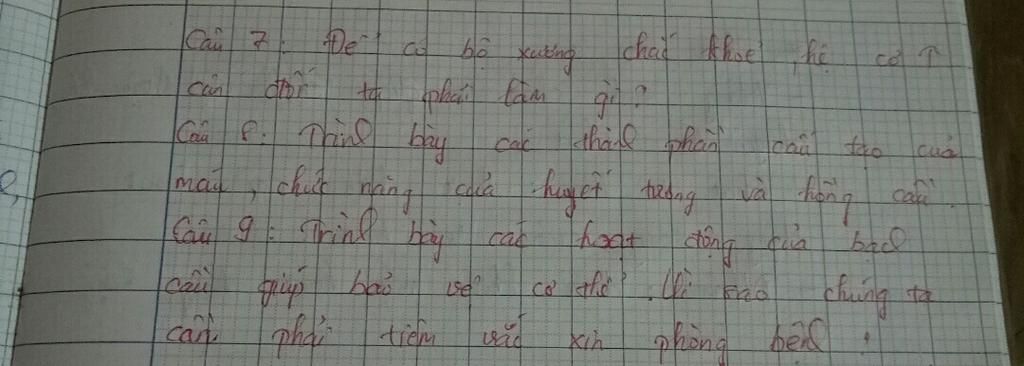 Câu 7: Để có bộ xương chắc khỏe, hệ cơ ↑
cân đối ta phải làm gì?
Câu 8: Trình bày các thành phần cấu tạo của
máu, chức năng của huyết tương và hồng cầu.
Câu 9: Trình bày các hoạt động của bạch
cầu giúp bảo vệ cơ thể. Vì sao chúng ta
cần phải tiêm vắc xin phòng bệnh.